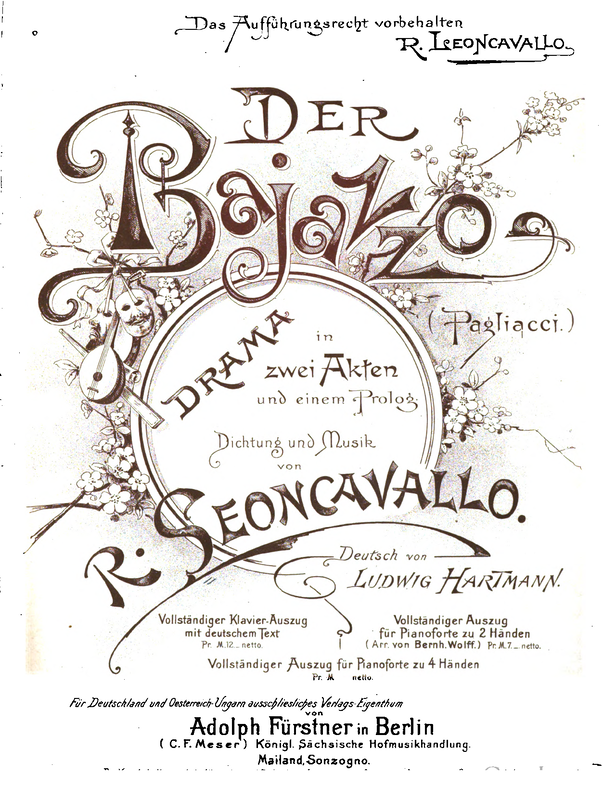 Das Aufführungsrecht vorbehalten
R. LEONCAVALLO.
DER
Bajazzo
(Pagliacci.)
DRAMA
in
zwei Akten
und einem Prolog.
Dichtung und Musik
von
R. LEONCAVALLO.
Deutsch von
LUDWIG HARTMANN.
Vollständiger Klavier-Auszug
mit deutschem Text
Pr. M. 12._ netto.
Vollständiger Auszug
für Pianoforte zu 2 Händen
(Arr. von Bernh. Wolff.) Pr. M. 7._ netto.
Vollständiger Auszug für Pianoforte zu 4 Händen
Pr. M netto.
Für Deutschland und Oesterreich-Ungarn ausschliesliches Verlags-Eigenthum
von
Adolph Fürstner in Berlin
(C. F. Meser) Königl. Sächsische Hofmusikhandlung.
Mailand, Sonzogno.